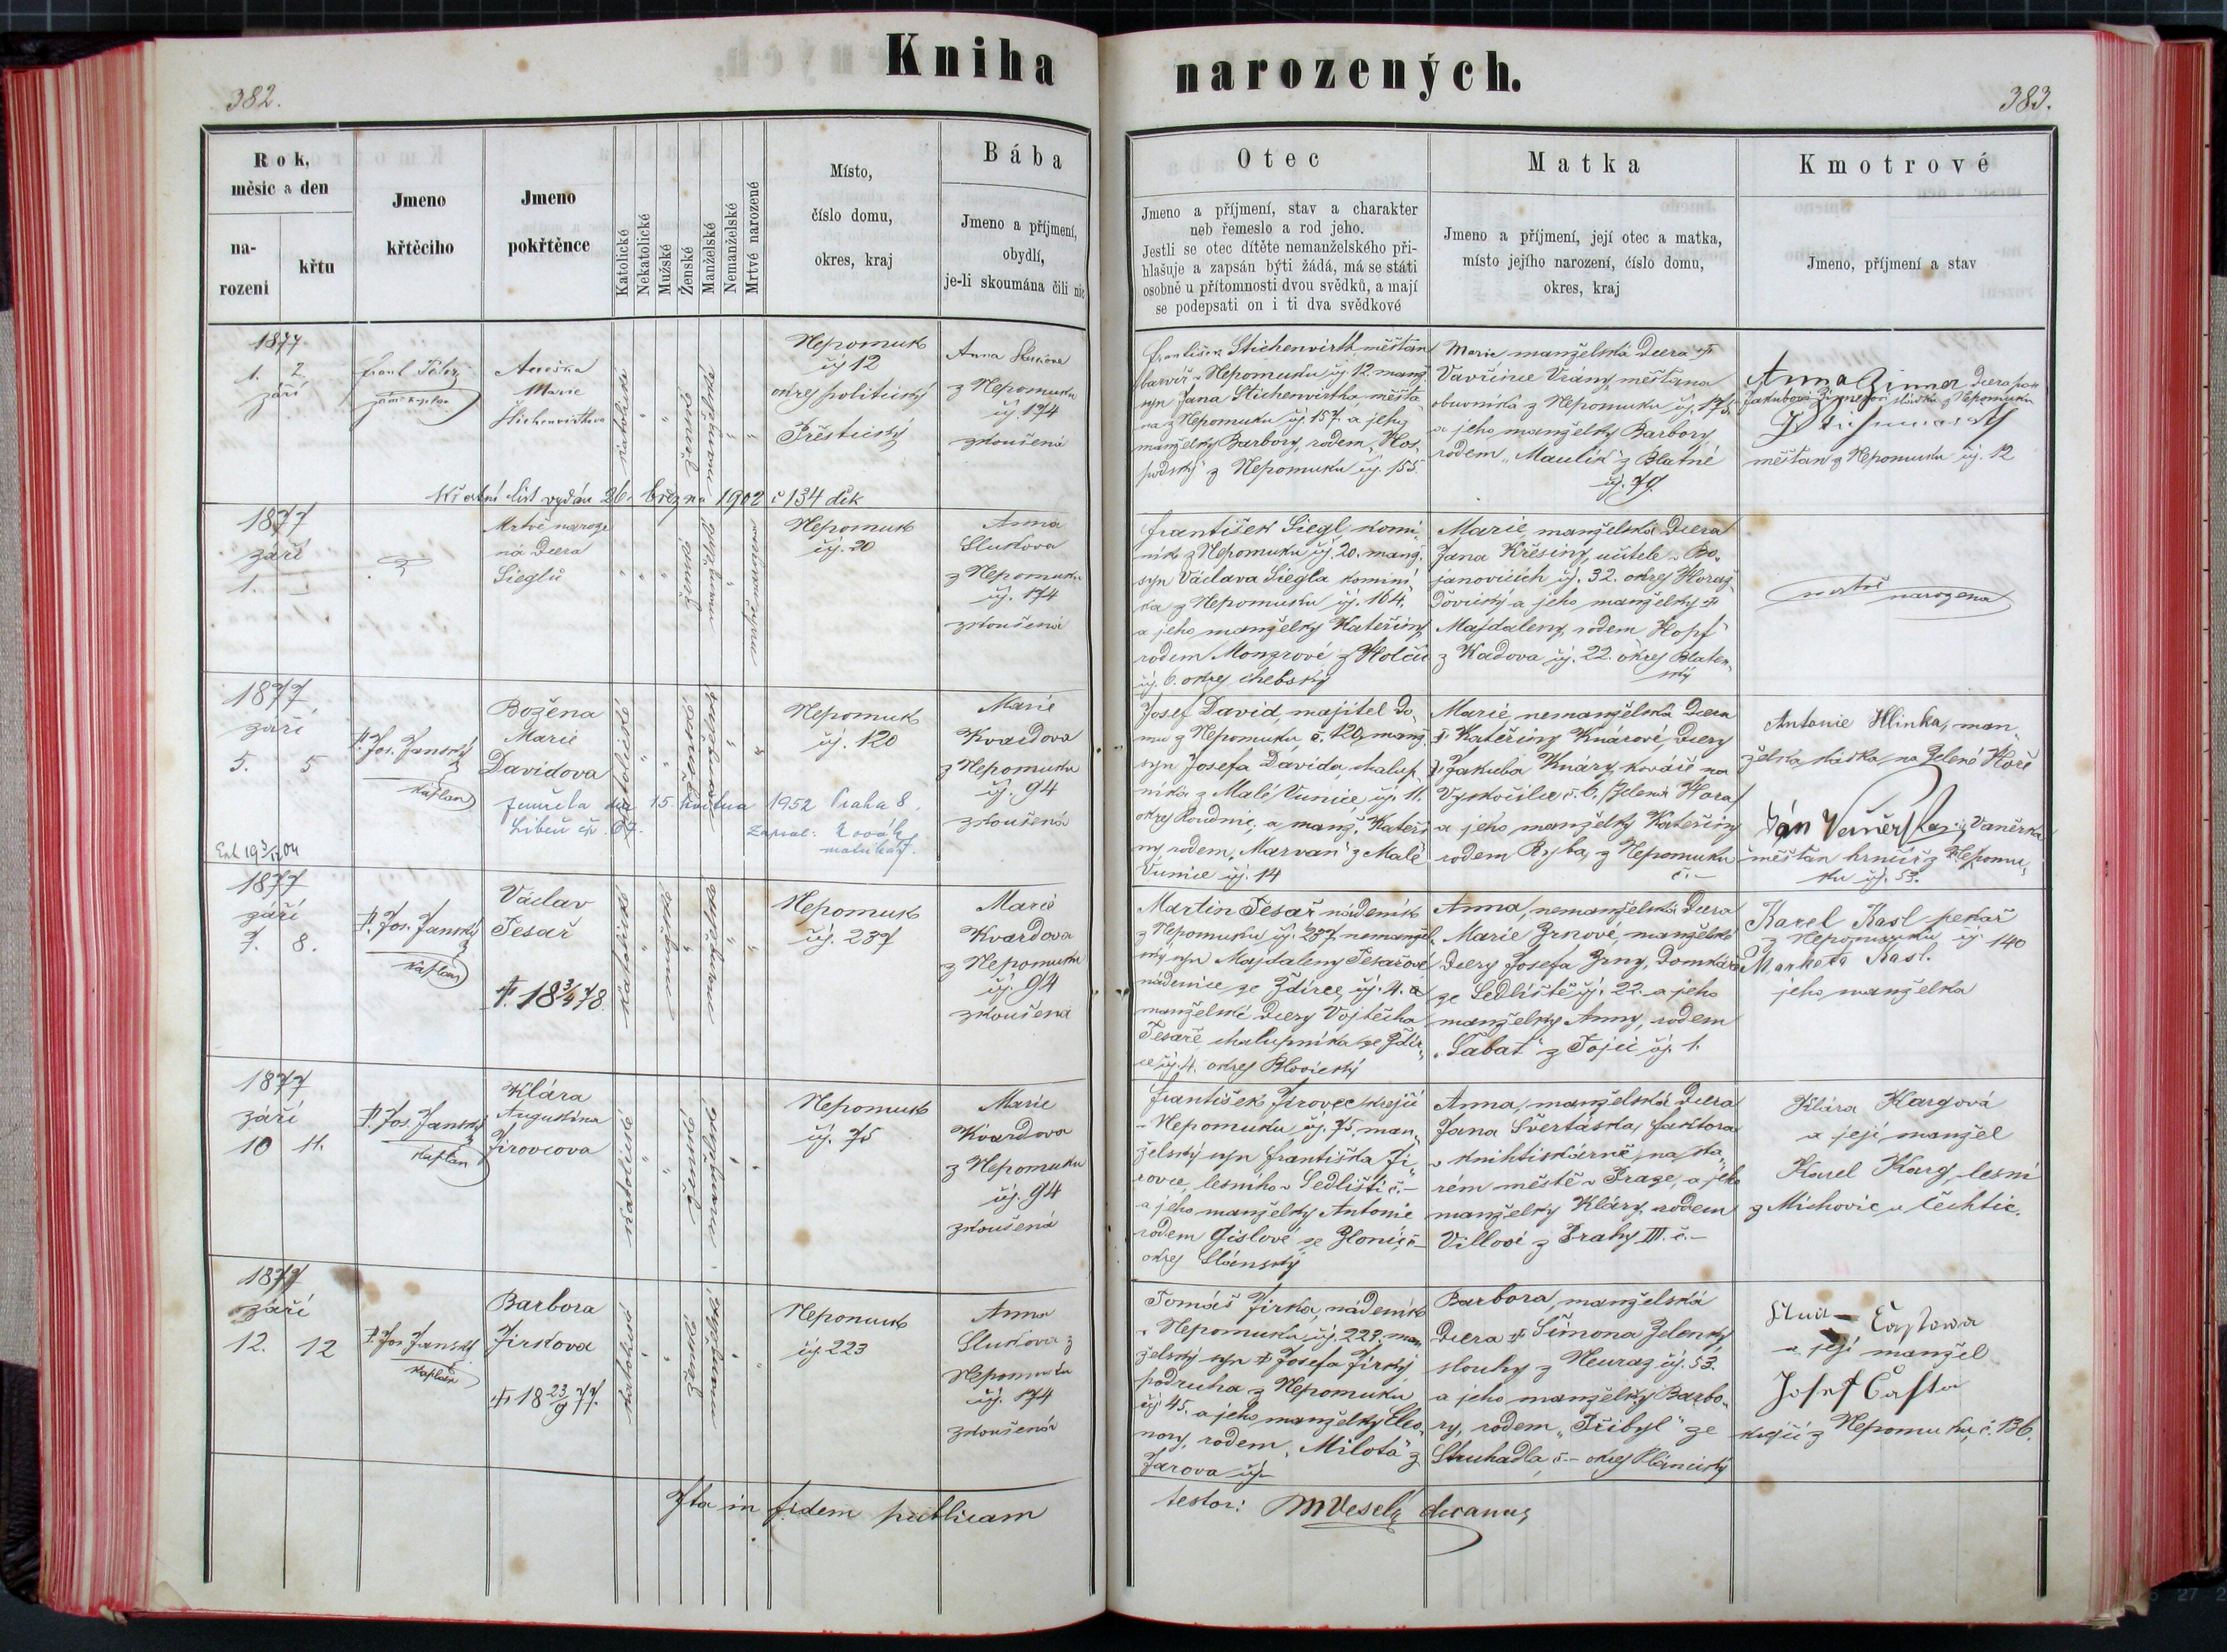 Kniha
narozených.
382.
383.
Rok,
měsíc a den
na-
rozeni
křtu
Jmeno
křtěciho
Jmeno
pokřtěnce
Katolické
Nekatolické
Mužské
Ženské
Manželské
Nemanželské
Mrtvé narozené
Místo,
číslo domu,
okres, kraj
Bába
Jmeno a příjmení,
obydlí,
je-li skoumána čili nic
Otec
Jmeno a příjmení, stav a charakter
neb řemeslo a rod jeho.
Jestli se otec dítěte nemanželského při-
hlašuje a zapsán býti žádá, má se státi
osobně u přítomnosti dvou svědků, a mají
se podepsati on i ti dva svědkové
Matka
Jmeno a příjmení, její otec a matka,
místo jejího narození, číslo domu,
okres, kraj
Kmotrové
Jmeno, příjmení a stav
1877
1. 2.
září
Anežka
Marie
Stichenwirthova
katolické
ženské
manželské
Nepomuk
čj 12
okres politický
Přeštický
Anna
z Nepomuku
čj. 174
zkoušená
František Stichenwirth měštan
barvíř v Nepomuku čj. 12. manž.
syn Jana Stichenwirtha měšta-
na z Nepomuku čj. 157. a jeho
manželky Barbory, rodem "Hos-
podský" z Nepomuku čj. 155.
Marie manželská dcera †
Vavřince Vrány, měštana
obuvníka z Nepomuku čj. 175.
a jeho manželky Barbory,
rodem "Maulík" z Blatné
čj. 79.
Anna Zinner dcera pan
Jakubovi Zinnerovi sládka z Nepomuku
měštan z Nepomuku čj. 12
Křestní list vydán 26. března 1902 č 134 děk
1877
září
1.
Mrtvě naroze
ná dcera
Sieglů
ženské
manželské
Nepomuk
čj. 20
Anna
Slukova
z Nepomuku
čj. 174
zkoušená
František Siegl komi-
ník z Nepomuku čj. 20. manž.
syn Václava Siegla komini-
ka z Nepomuku čj. 164.
a jeho manželky Kateřiny
rodem
čj. 6. okres chebský
Marie, manželská dcera
Jana Křesiny, učitele v Bo-
janovicích čj. 32. okres Horaž-
ďovický a jeho manželky †
Majdaleny, rodem "Hopf"
z Kadova čj. 22. okres Blaten-
ský
mrtvě
narozena
1877
září
5. 5
P. Jos. Janský
kaplan
Božena
Marie
Davidova
katolické
ženské
manželské
Nepomuk
čj. 120
Marie
Kvardova
z Nepomuku
čj. 94
zkoušená
Josef David, majitel do-
mu z Nepomuku, č. 120, manž.
syn Josefa Davida, chalup-
níka z Malé Vunice, čj. 11.
okres Roudnic, a manž. Kateři-
ny rodem "Marvan" z Malé
Vunice čj. 14
Marie, nemanželská dcera
† Kateřiny Knárové, dcery
† Jakuba Knáry, kováře na
Vyskočilce č. 6. (Zelená Hora)
a jeho manželky Kateřiny
rodem Ryba, z Nepomuku
č. -
Antonie Hlinka, man-
želka sládka, na Zelené Hoře
Ján Vaněrka
měštan hrnčíř z Nepomu-
ku čj. 53.
zemřela dne 15. května 1952 Praha 8.
Libeň čp. 67.
Zapsal: Novák
matrikář.
1877
září
7. 8.
P. Jos. Janský
kaplan
Václav
Tesař
†. 18 3/4 78
katolické
mužské
manželské
Nepomuk
čj. 237
Marie
Kvardova
z Nepomuku
čj. 94
zkoušená
Martin Tesař nádeník
z Nepomuku čj. 237. nemanžel-
ský syn Majdaleny Tesařové
nádenice ze Ždírce, čj. 4. a
manželské dcery Vojtěcha
Tesaře chalupníka ze Ždír-
ce čj. 4. okres Blovický
Anna, nemanželská dcera
Marie Zrnové, manželské
dcery Josefa Zrny, domkáře
ze Sedliště čj. 22. a jeho
manželky Anny, rodem
"Šabat" z Tojic čj. 1.
Karel Kasl pekař
z Nepomuku čj 140
Marketa Kasl.
jeho manželka
1877
září
10 11.
P. Jos. Janský
kaplan
Klára
Augustina
Jirovcova
katolické
ženské
manželské
Nepomuk
čj. 75
Marie
Kvardova
z Nepomuku
čj. 94
zkoušená
František Jirovec krejčí
v Nepomuku čj. 75, man-
želský syn Františka Ji-
rovce, lesního v Sedlišti č. -
a jeho manželky Antonie
rodem Gislové ze Zlonic, č -
okres Slánský
Anna, manželská dcera
Jana Švertáska, faktora
v knihtiskárně, na sta-
rém městě v Praze, a jeho
manželky Kláry, rodem
Villové z Prahy III. č. -
Klára Kargová
a její manžel
Karel Karg, lesní
z Michovic u Čechtic.
1877
září
12. 12
P. Jos. Janský
kaplan
Barbora
Jirkova
† 18 23/9 77.
katolické
ženské
manželské
Nepomuk
čj. 223
Anna
Slukova z
Nepomuku
čj. 174
zkoušená
Tomáš Jirka, nádeník
v Nepomuku, čj. 223. man-
želský syn † Josefa Jirky
podruha z Nepomuku
čj 45. a jeho manželky Eleo-
nory, rodem "Milota" z
Žarova čj -
Barbora, manželská
dcera † Šimona Zelenky
slouhy z Neuraz čj. 53.
a jeho manželky Barbo-
ry, rodem "Přibyl" ze
Struhadla, č. - okres Plánický
Částowa
a její manžel
Josef Časta
krejčí z Nepomuku, č. 136.
Ita in fidem publicam
testor: MVeselý decanus